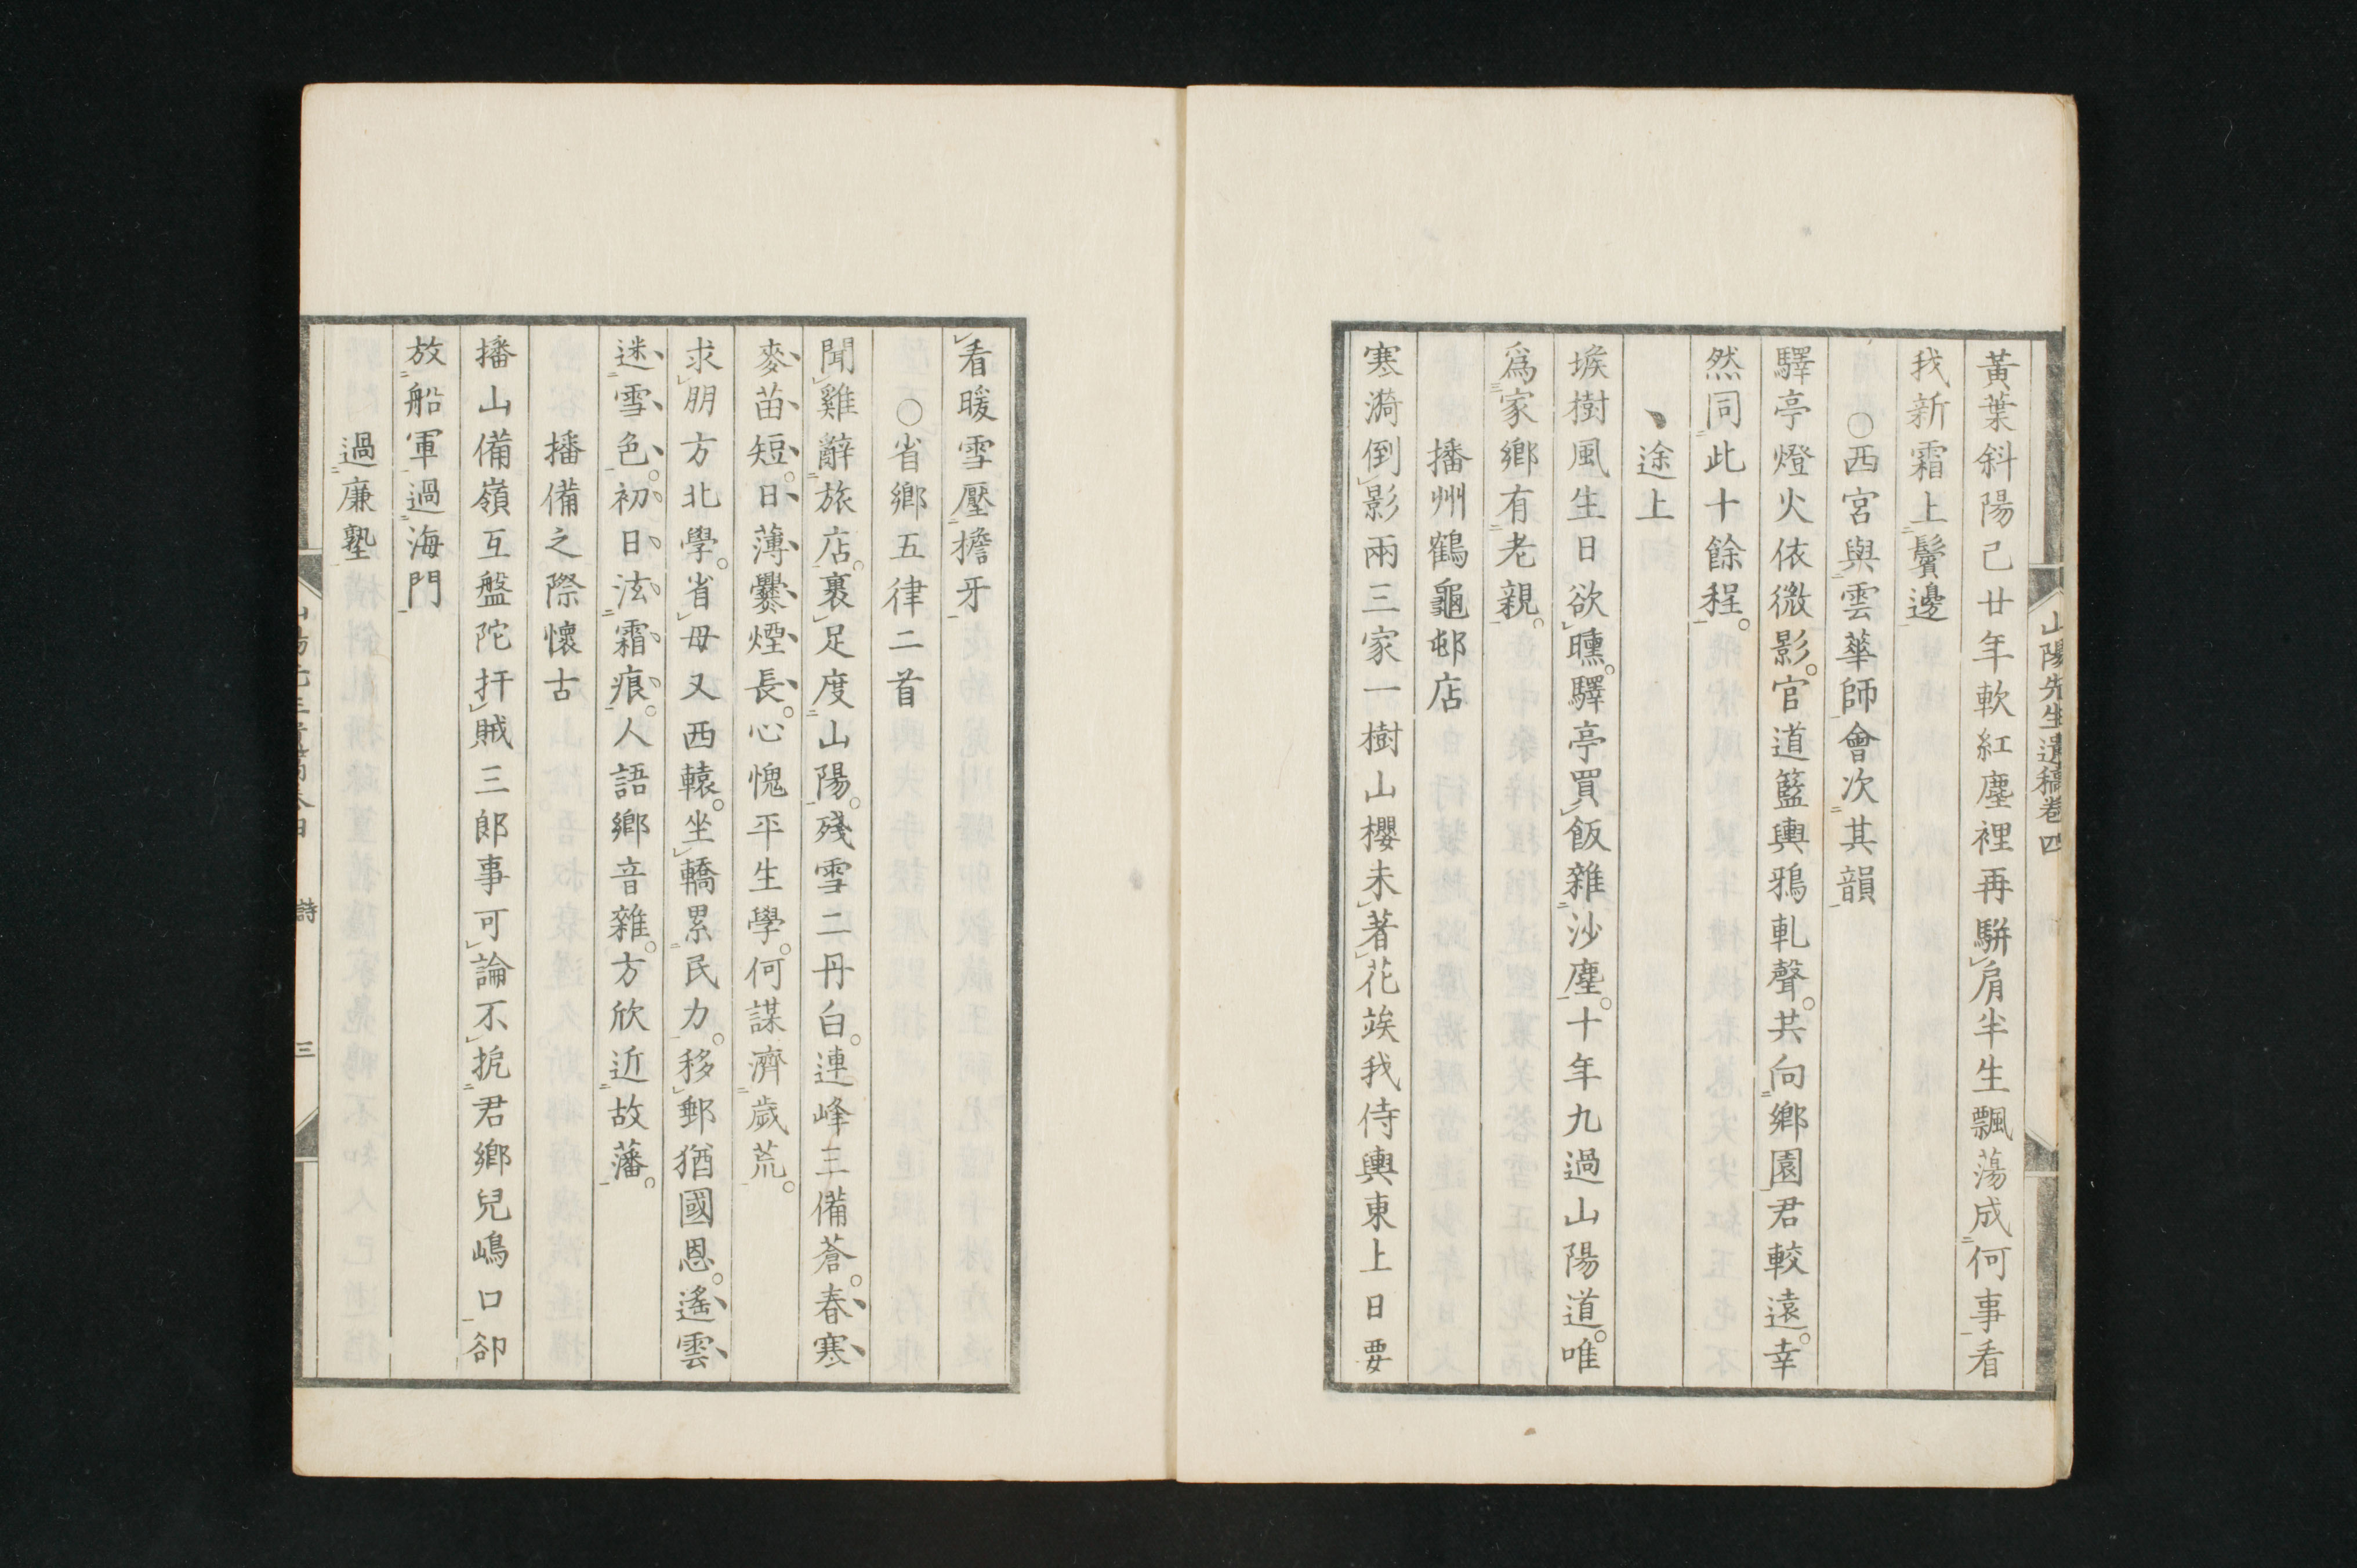 山陽先生遺稿卷四
黃葉斜陽已廿年軟紅塵裡再騈肩半生飄蕩成何事看
我新霜上鬢邊
○西宮與雲華師會次其韻
驛亭燈火依微影。官道籃輿鴉軋聲。共向鄉園君較遠。幸
然同此十餘程。
途上
堠樹風生日欲曛。驛亭買飯雜沙塵。十年九過山陽道。唯
爲家鄉有老親。
播州鶴龜邨店
寒漪倒影兩三家一樹山櫻未著花竢我侍輿東上日要
看暖雪壓擔牙
○省鄉五律二首
聞雞辭旅店。裹足度山陽。殘雪二丹白。連峰三備蒼。春寒
麥苗短。日薄爨煙長。心愧平生學。何謀濟歲荒。
求朋方北學。省母又西轅。坐轎累民力。移郵猶國恩。遙雲
迷雪色。初日泫霜痕。人語鄉音雜。方欣近故藩。
播備之際懷古
播山備嶺互盤陀扞賊三郎事可論不扼君鄉兒嶋口卻
放船軍過海門
過廉塾
詩
三